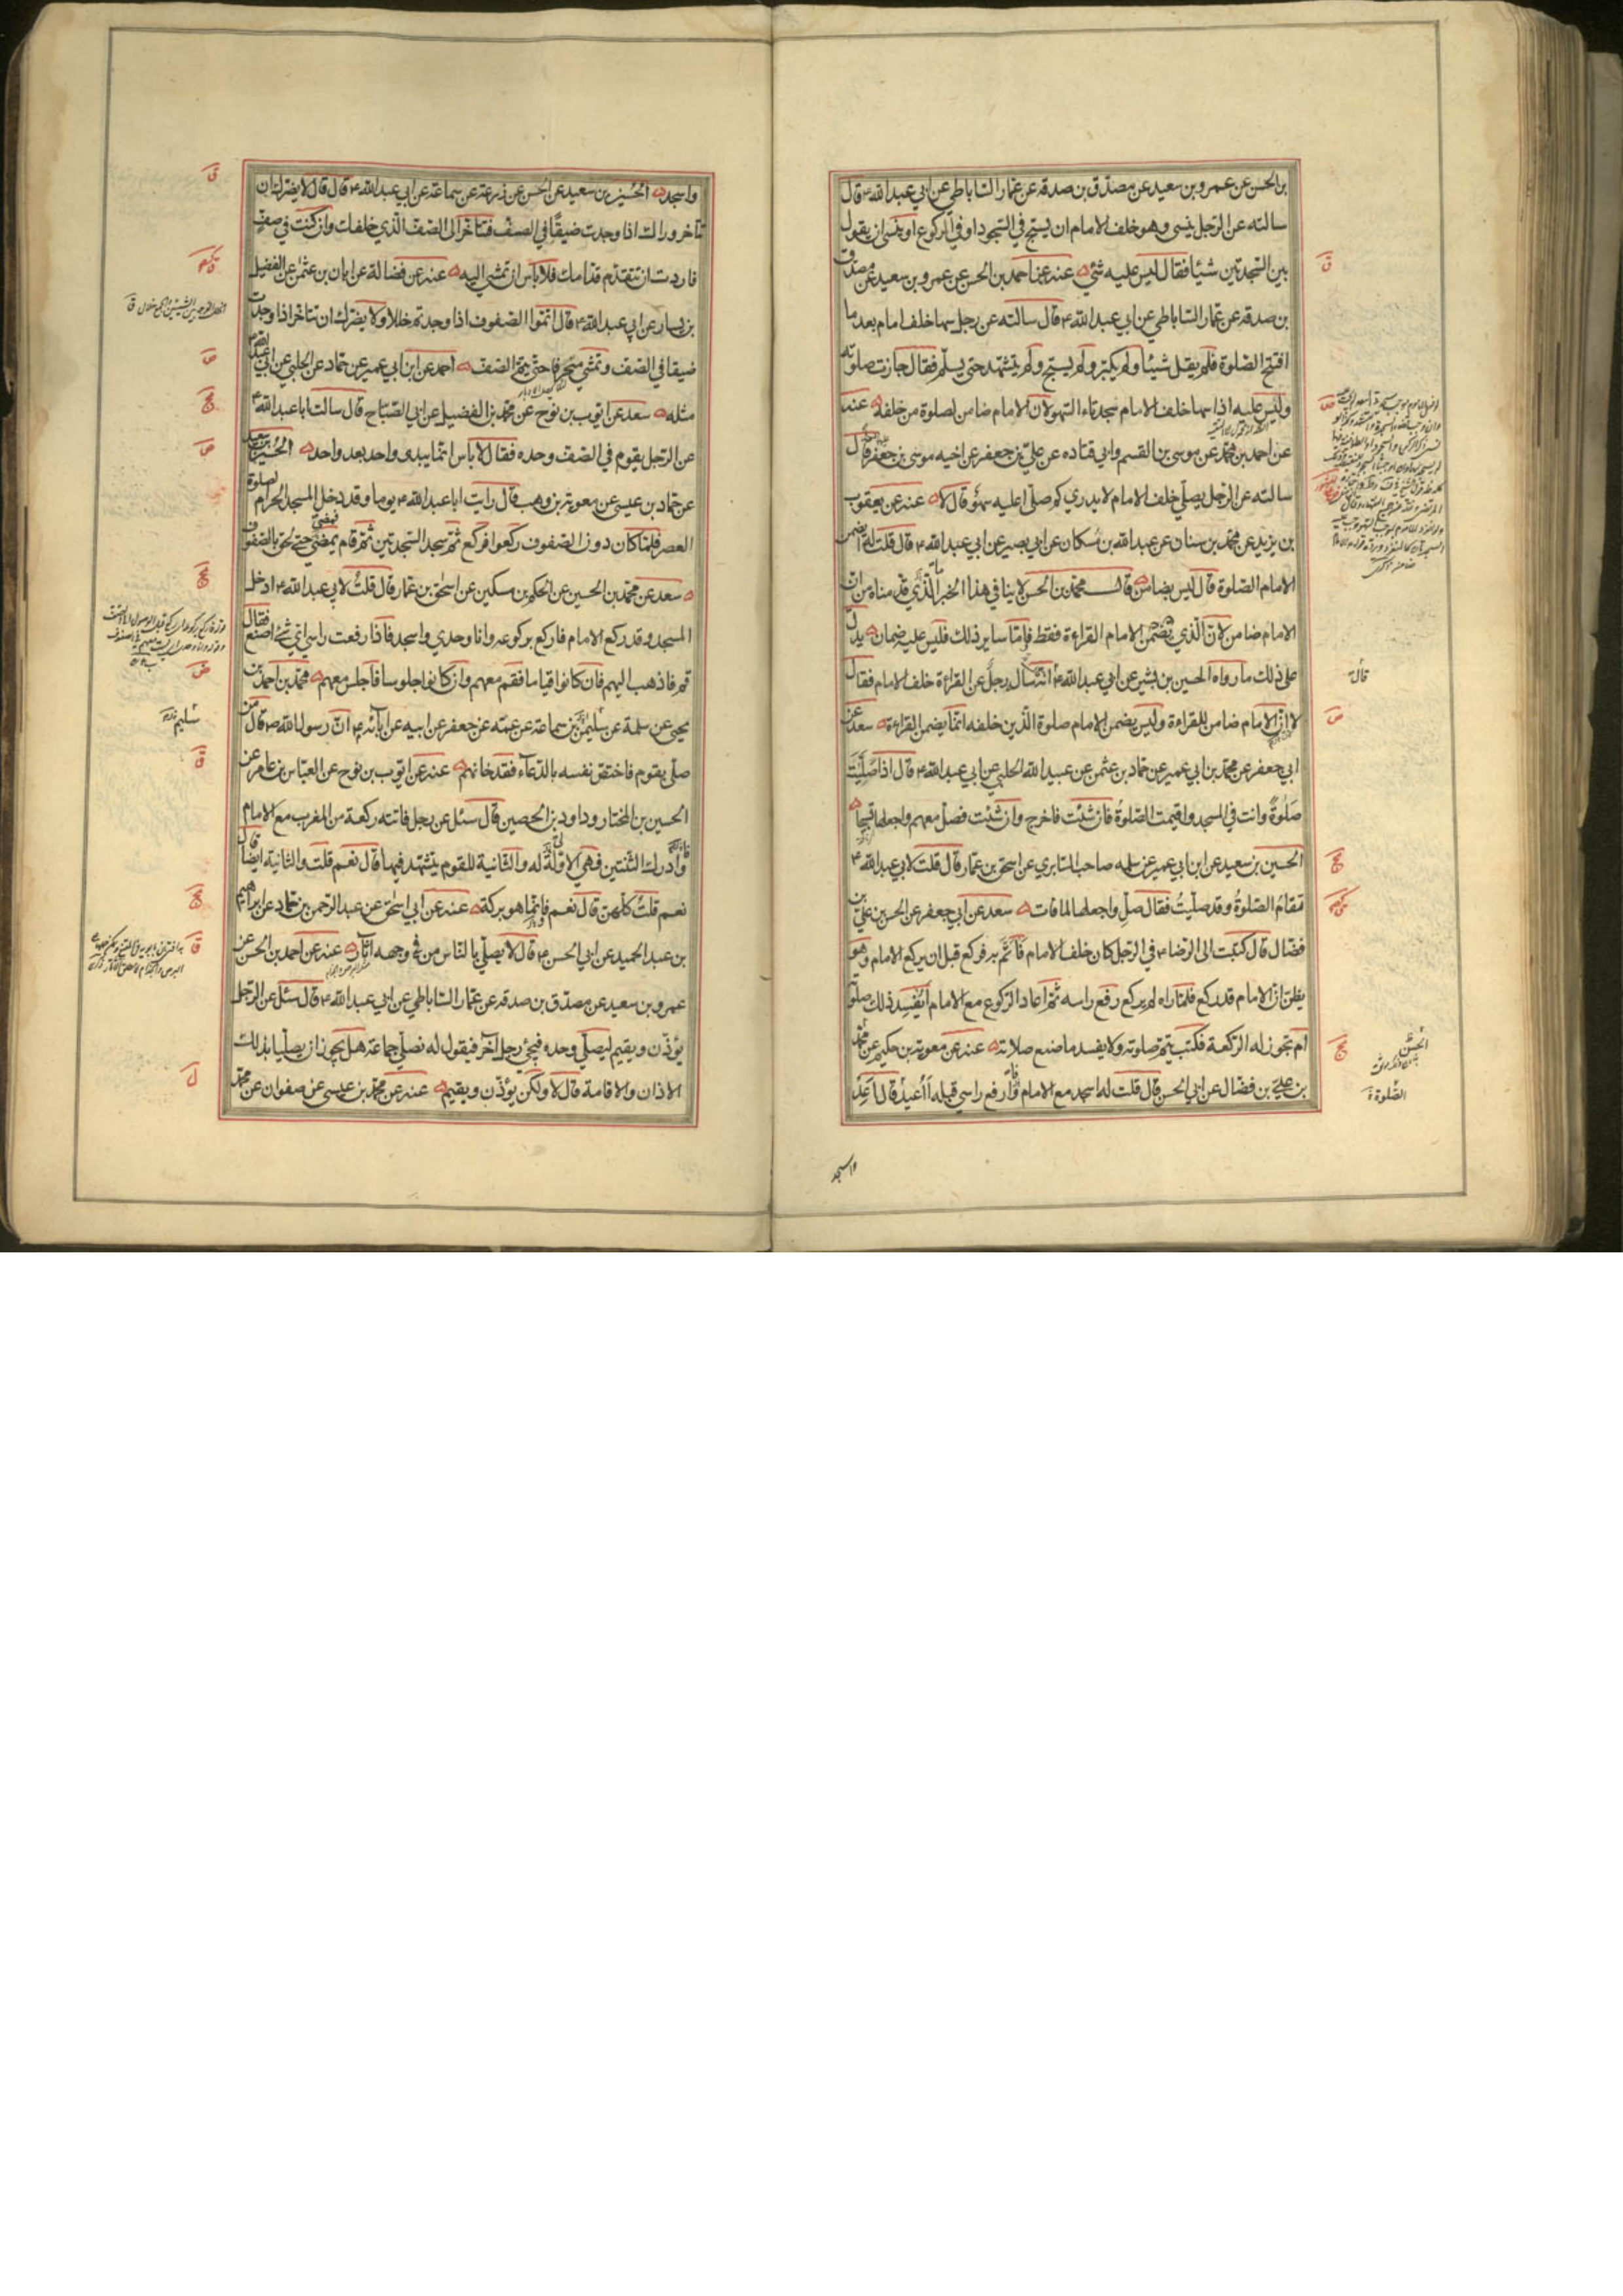 بن الحسن عن عمرو بن سعيد عن مصدق بن صدقه عن عمار الساباطي عن ابي عبد الله ع قال
سالته عن الرجل ينسى وهو خلف الامام ان يسبح في السجود او في الركوع او نسى ان يقول
بين السجدتين شيئا فقال ليس عليه شئ عنه عن احمد بن الحسن عن عمرو بن سعيد عن مصدق
بن صدقه عن عمار الساباطي عن ابي عبد الله ع قال سالته عن رجل سها خلف امام بعد ما
افتتح الصلوة فلم يقل شيئا ولم يكبر ولم يسبح ولم يتشهد حتى يسلم فقال جازت صلوته
وليس عليه اذا سها خلف الامام سجدتا السهو لان الامام ضامن لصلوة من خلفه عنه
عن احمد بن محمد عن موسى بن القسم وابي قتاده عن علي بن جعفر عن اخيه موسى بن جعفر قال
سالته عن الرجل يصلي خلف الامام لا يدري كم صلى اعليه سهو قال لا عنه عن يعقوب
بن يزيد عن محمد بن سنان عن عبد الله بن مسكان عن ابي بصير عن ابي عبد الله ع قال قلت له ايضمن
الامام الصلوة قال ليس بضامن قال محمد بن الحسن لا ينافي هذا الخبر الذي قدمناه من ان
الامام ضامن لان الذي يضمن الامام القراءة فقط فاما ساير ذلك فليس عليه ضمان يدل
على ذلك ما رواه الحسين بن بشير عن ابي عبد الله ع انه سال رجل عن القراءة خلف الامام فقال
لا ان الامام ضامن للقراءة وليس يضمن الامام صلوة الذين خلفه انما يضمن القراءة سعد عن
ابي جعفر عن محمد بن ابي عمير عن حماد بن عثمن عن عبيد الله الحلبي عن ابي عبد الله ع قال اذا صليت
صلوة وانت في المسجد واقيمت الصلوة فان شئت فاخرج وان شئت فصل معهم واجعلها تسبيحا
الحسين بن سعيد عن ابن ابي عمير عن سلمه صاحب السابري عن اسحق بن عمار قال قلت لابي عبد الله ع
تقام الصلوة وقد صليت فقال صل واجعلها لما فات سعد عن ابي جعفر عن الحسن بن علي بن
فضال قال كتبت الى الرضا ع في الرجل كان خلف الامام ثم به فركع قبل ان يركع الامام وهو
يظن ان الامام قد ركع فلما راه لم يركع رفع راسه ثم اعاد الركوع مع الامام ايفسد ذلك صلوته
ام تجوز له الركعة فكتب يتم صلوته ولا يفسد ما صنع صلاته عنه عن معوية بن حكيم عن محمد
بن علي بن فضال عن ابي الحسن قال قلت له اسجد مع الامام وارفع راسي قبله أأعيد قال اعد
واسجد
قال
الحسن
الصلوة
واسجد الحسين بن سعيد عن الحسن عن زرعة عن سماعة عن ابي عبد الله ع قال قال لا يضرك ان
تاخر وراك اذا وجدت ضيقا في الصف فتاخر الى الصف الذي خلفك وان كنت في صف
فاردت ان تتقدم قدامك فلا باس ان تمشي اليه عنه عن فضالة عن ابان بن عثمن عن الفضيل
بن يسار عن ابي عبد الله ع قال اتموا الصفوف اذا وجدتم خللا ولا يضرك ان تتاخر اذا وجدت
ضيقا في الصف وتمشي منحرفا حتى تتم الصف احمد عن ابن ابي عمير عن حماد عن الحلبي عن ابي عبد الله ع
مثله سعد عن ايوب بن نوح عن محمد بن الفضيل عن ابي الصباح قال سالت ابا عبد الله ع
عن الرجل يقوم في الصف وحده فقال لا باس انما يبدو واحد بعد واحد الحسين بن سعيد
عن حماد بن عيسى عن معوية بن وهب قال رايت ابا عبد الله ع يوما وقد دخل المسجد الحرام لصلوة
العصر فلما كان دون الصفوف ركعوا فركع ثم سجد السجدتين ثم قام فمضى حتى لحق بالصفوف
سعد عن محمد بن الحسين عن الحكم بن مسكين عن اسحق بن عمار قال قلت لابي عبد الله ع ادخل
المسجد وقد ركع الامام فاركع بركوعه وانا وحدي واسجد فاذا رفعت راسي اي شئ اصنع فقال
قم فاذهب اليهم فان كانوا قياما فقم معهم وان كانوا جلوسا فاجلس معهم محمد بن احمد بن
يحيى عن سلمة عن سليمن بن سماعة عن عمه عن جعفر عن ابيه عن ابائه ع ان رسول الله ص قال من
صلى بقوم فاختص نفسه بالدعاء فقد خانهم عنه عن ايوب بن نوح عن العباس بن عامر عن
الحسين بن المختار وداود بن الحصين قال سئل عن رجل فاتته ركعة من المغرب مع الامام
وادرك الثنتين فهي الاولى له والثانية للقوم يتشهد فيها قال نعم قلت والثانية ايضا قال
نعم قلت كلهن قال نعم فانما هو بركة عنه عن ابي اسحق عن عبد الرحمن بن حماد عن ابراهيم
بن عبد الحميد عن ابي الحسن ع قال لا يصلي بالناس من في وجهه اثار عنه عن احمد بن الحسن عن
عمرو بن سعيد عن مصدق بن صدقه عن عمار الساباطي عن ابي عبد الله ع قال سئل عن الرجل
يؤذن ويقيم ليصلي وحده فيجئ رجل آخر فيقول له نصلي جماعة هل يجوز ان يصليا بذلك
الاذان والاقامة قال لا ولكن يؤذن ويقيم عنه عن محمد بن عيسى عن صفوان عن محمد
سليم